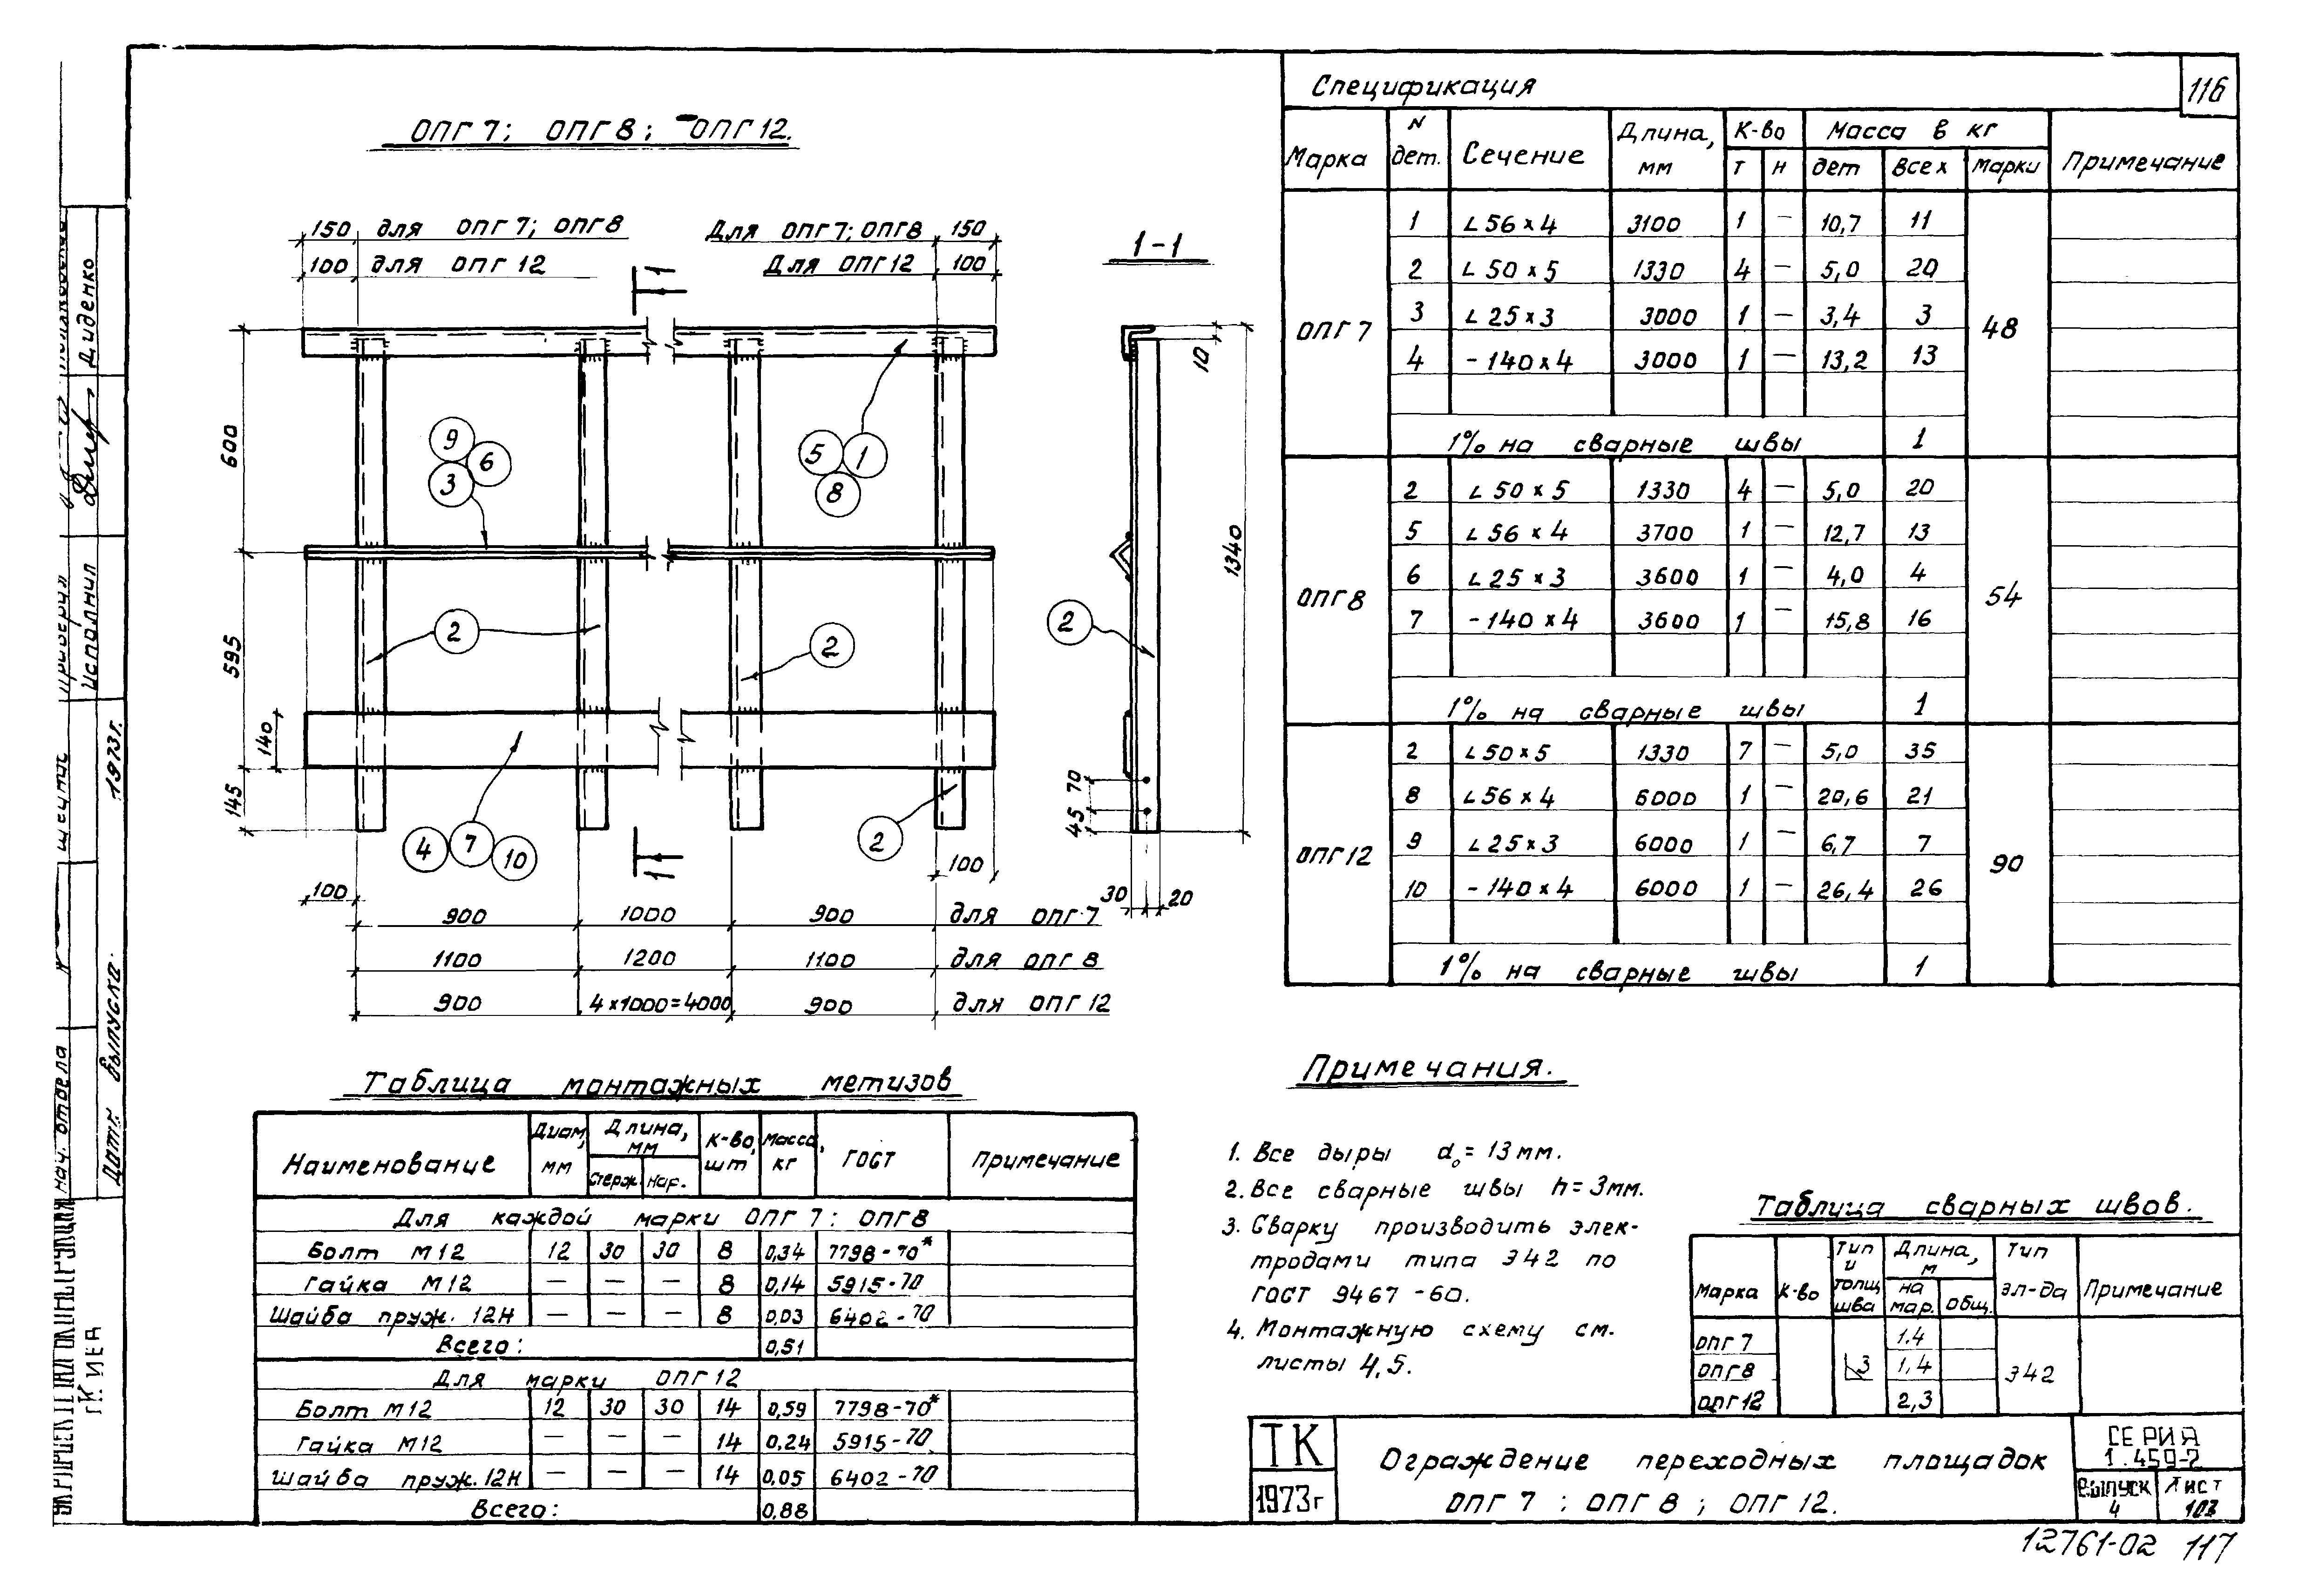 116
ОПГ 7; ОПГ 8; ОПГ 12.
150 для ОПГ 7; ОПГ 8
Для ОПГ 7; ОПГ 8 150
100 для ОПГ 12
Для ОПГ 12 100
1
1-1
10
600
9
6
3
5
1
8
1340
2
2
2
595
140
145
70
45
4
7
10
2
1
100
100
30
20
900 1000 900 для ОПГ 7
1100 1200 1100 для ОПГ 8
900 4×1000=4000 900 для ОПГ 12
Спецификация
Марка N дет. Сечение Длина, мм К-во Масса в кг Примечание
т н дет всех марки
ОПГ 7 48
1 ∟56×4 3100 1 — 10,7 11
2 ∟50×5 1330 4 — 5,0 20
3 ∟25×3 3000 1 — 3,4 3
4 -140×4 3000 1 — 13,2 13
1% на сварные швы 1
ОПГ 8 54
2 ∟50×5 1330 4 — 5,0 20
5 ∟56×4 3700 1 — 12,7 13
6 ∟25×3 3600 1 — 4,0 4
7 -140×4 3600 1 — 15,8 16
1% на сварные швы 1
ОПГ 12 90
2 ∟50×5 1330 7 — 5,0 35
8 ∟56×4 6000 1 — 20,6 21
9 ∟25×3 6000 1 — 6,7 7
10 -140×4 6000 1 — 26,4 26
1% на сварные швы 1
Таблица монтажных метизов
Наименование Диам, мм Длина, мм К-во, шт Масса, кг ГОСТ Примечание
стерж. нар.
Для каждой марки ОПГ 7: ОПГ 8
Болт М12 12 30 30 8 0,34 7798-70*
Гайка М12 — — — 8 0,14 5915-70
Шайба пруж. 12Н — — — 8 0,03 6402-70
Всего: 0,51
Для марки ОПГ 12
Болт М12 12 30 30 14 0,59 7798-70*
Гайка М12 — — — 14 0,24 5915-70
Шайба пруж. 12Н — — — 14 0,05 6402-70
Всего: 0,88
Примечания.
1. Все дыры d₀=13мм.
2. Все сварные швы h=3мм.
3. Сварку производить элек-
тродами типа Э42 по
ГОСТ 9467-60.
4. Монтажную схему см.
листы 4,5.
Таблица сварных швов.
Марка К-во Тип и толщ шва Длина, м Тип эл-да Примечание
на мар. общ.
ОПГ 7 1.4
ОПГ 8 3 1,4 Э42
ОПГ 12 2,3
ТК
1973г
Ограждение переходных площадок
ОПГ 7 ; ОПГ 8 ; ОПГ 12.
СЕРИЯ
1.459-2
Выпуск
4
Лист
103
12761-02 117
Диденко
Исполнил
1973г.
Дата выпуска
нач. отдела
г Киев